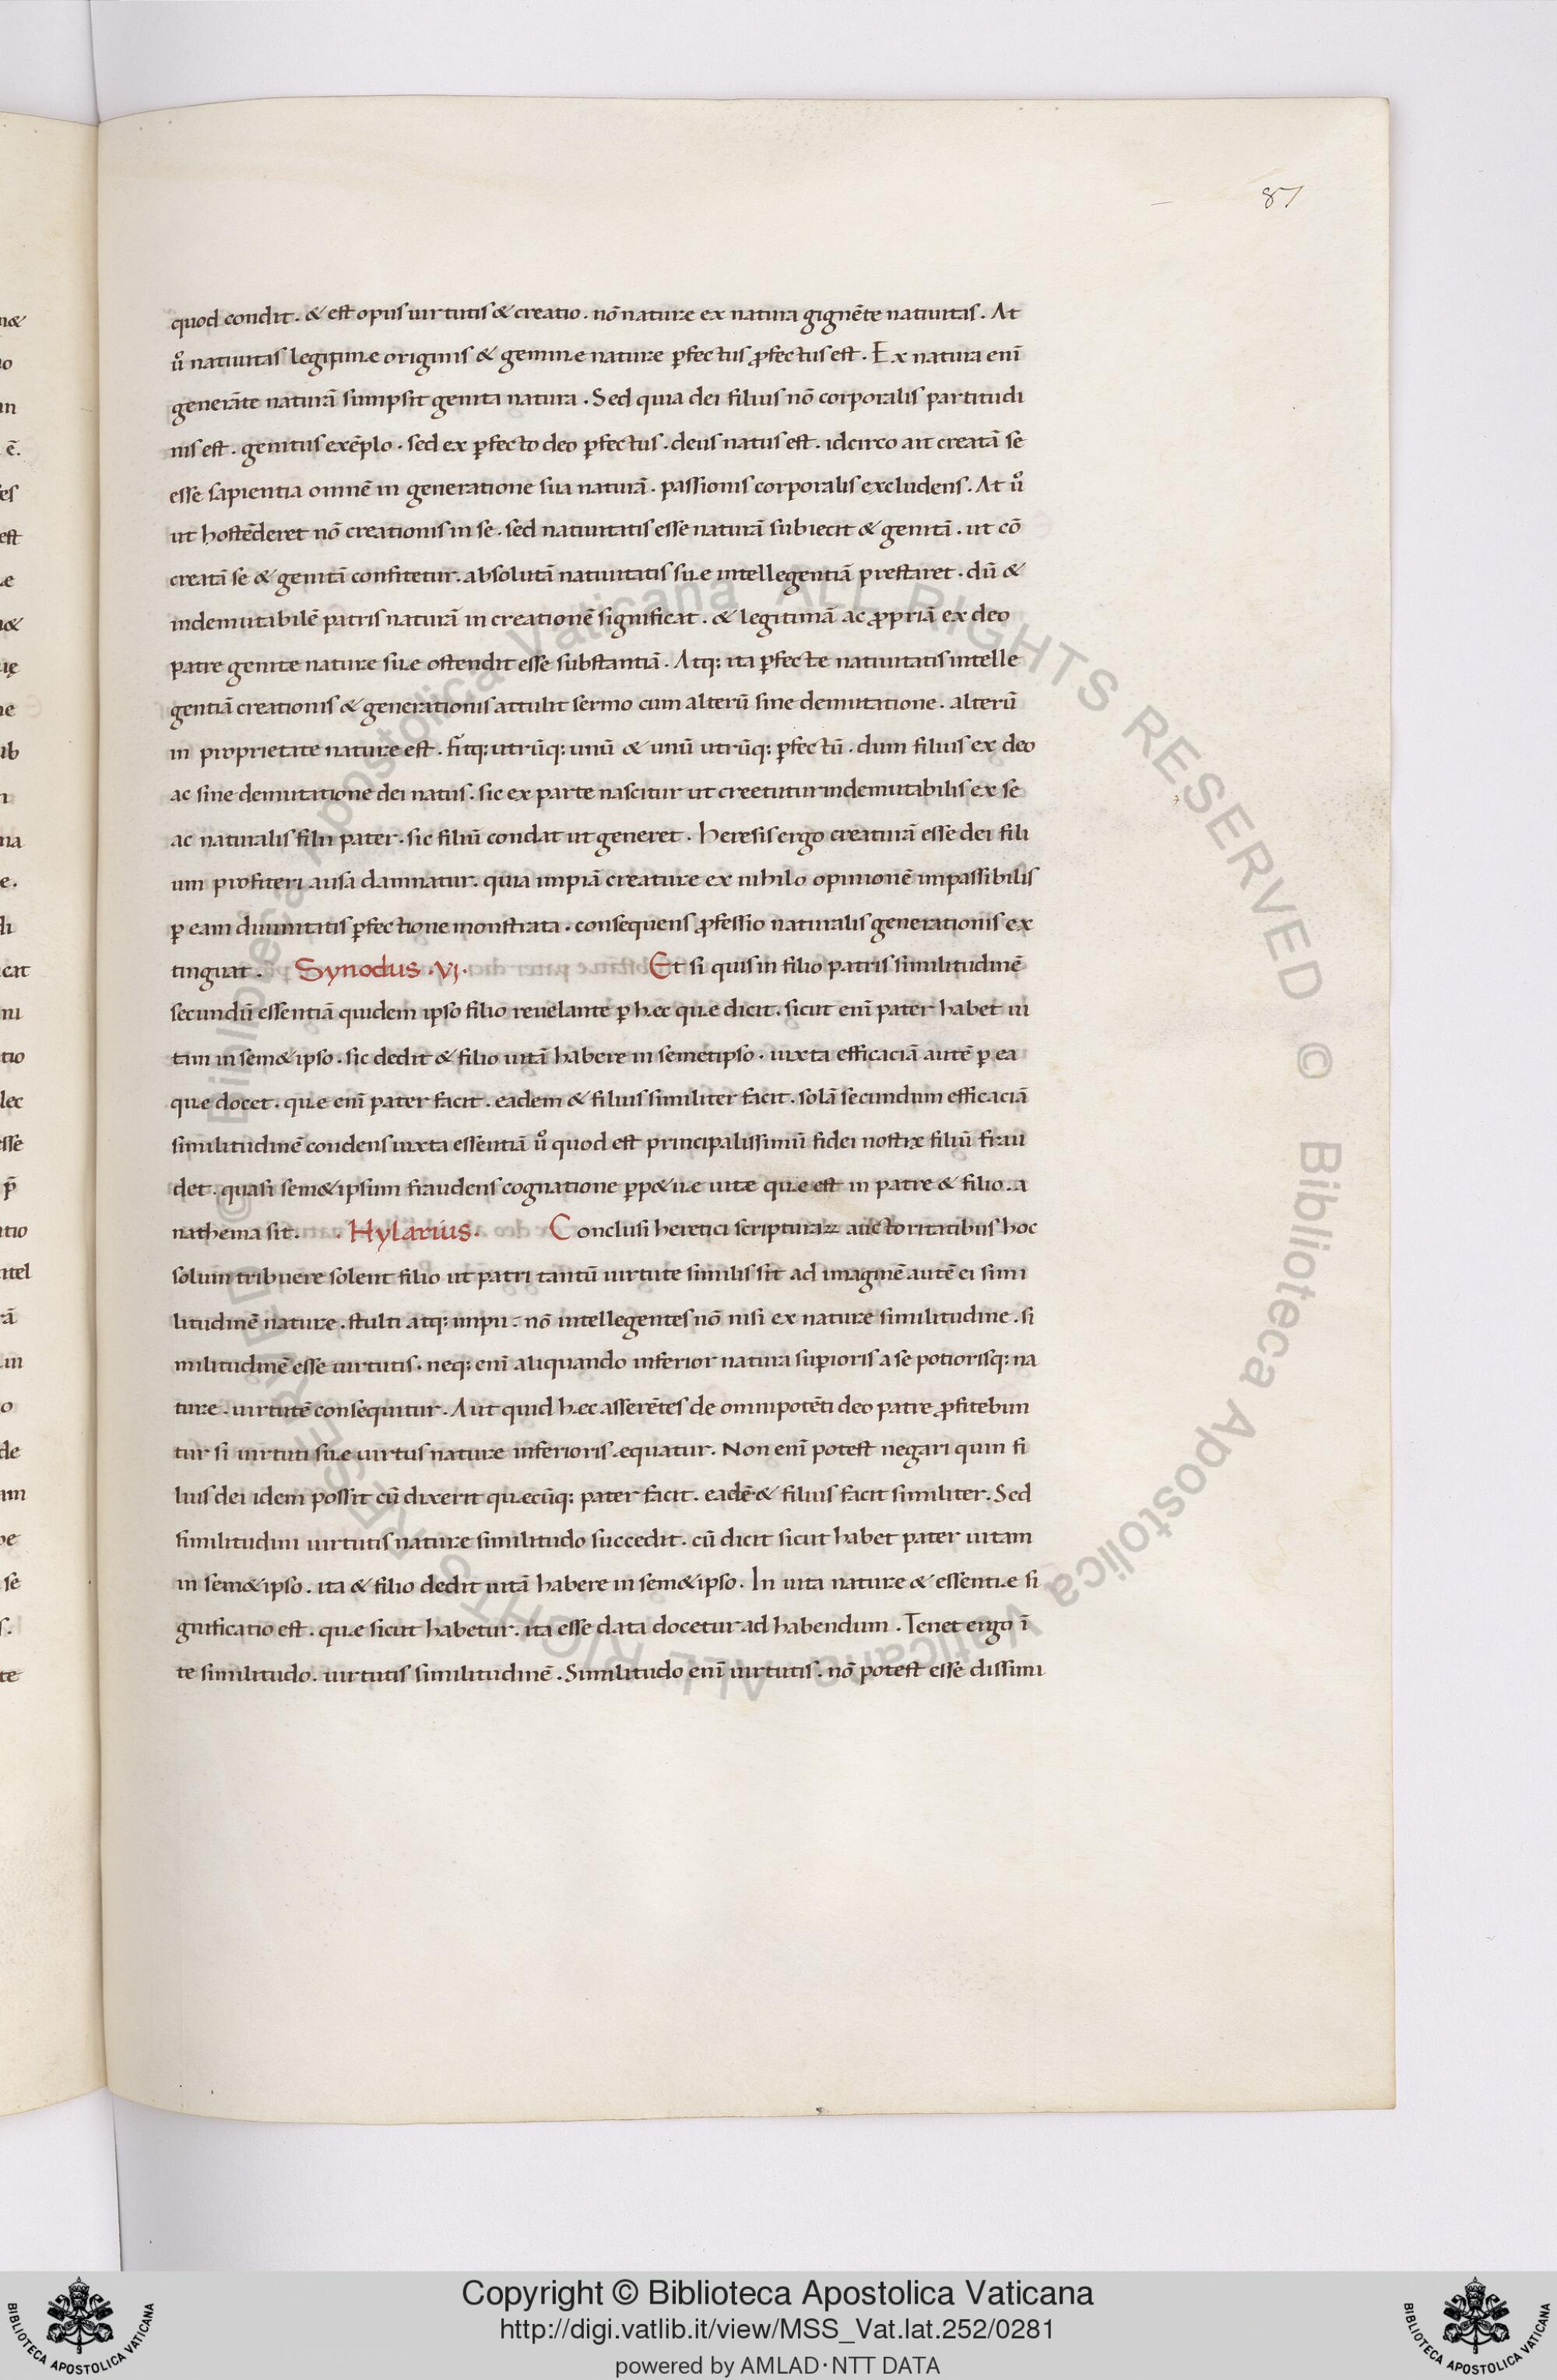 87
quod condit. & est opus uirtutis & creatio. nō naturæ ex natura gignēte natiuitas. At
uͦ natiuitas legitimæ originis & genuinæ naturæ ꝑfectus ꝓfectus est. Ex natura enī
generāte naturā sumpsit genita natura. Sed quia dei filius nō corporalis partitudi
nis est. genitus exēplo. sed ex ꝑfecto deo ꝑfectus. deus natus est. idcirco ait creatā se
esse sapientia omnē in generatione sua naturā. passionis corporalis excludens. At uͦ
ut hostēderet nō creationis in se. sed natiuitatis esse naturā subiecit & genitā. ut cō
creatā se & genitā confitetur. absolutā natiuitatis suæ intellegentiā prestaret. dū &
indemutabilē patris naturā in creationē significat. & legitimā ac ꝓpriā ex deo
patre genitæ naturæ suæ ostendit esse substantiā. Atq: ita ꝑfectæ natiuitatis intelle
gentiā creationis & generationis attulit sermo cum alterū sine demutatione. alterū
in proprietate naturæ est. fitq: utrūq: unū & unū utrūq: ꝑfectū. dum filius ex deo
ac sine demutatione dei natus. sic ex parte nascitur ut creetutur indemutabilis ex se
ac naturalis filii pater. sic filiū condat ut generet. Heresis ergo creaturā esse dei fili
um profiteri ausa damnatur. quia impiā creaturæ ex nihilo opinionē impassibilis
ꝑ eam diuinitatis ꝑfectione monstrata. consequens ꝓfessio naturalis generationis ex
tinguat. Synodus .VI. Et si quis in filio patris similitudinē
secundū essentiā quidem ipso filio reuelante ꝑ hæc quæ dicit. sicut enī pater habet ui
tam in sem&ipso. sic dedit & filio uitā habere in semetipso. iuxta efficaciā autē ꝑ ea
quæ docet. quæ enī pater facit. eadem & filius similiter facit. solā secundum efficaciā
similitudinē condens iuxta essentiā uͦ quod est principalissimū fidei nostræ filiū frau
det. quasi sem&ipsum fraudens cognatione ꝑp&uæ uitæ quæ est in patre & filio. a
nathema sit. Hylarius. Conclusi heretici scripturaꝝ auctoritatibus hoc
solum tribuere solent filio ut patri tantū uirtute similis sit ad imaginē autē ei simi
litudinē naturæ. stulti atq: impii. nō intellegentes nō nisi ex naturæ similitudine. si
militudinē esse uirtutis. neq: enī aliquando inferior natura supioris a se potiorisq: na
turæ. uirtutē consequitur. Aut quid hæc asserētes de omnipotēti deo patre ꝓfitebun
tur si uirtuti suæ uirtus naturæ inferioris æquatur. Non enī potest negari quin fi
lius dei idem possit cū dixerit quæcūq: pater facit. eadē & filius facit similiter. Sed
similitudini uirtutis naturæ similitudo succedit. cū dicit sicut habet pater uitam
in sem&ipso. ita & filio dedit uitā habere in sem&ipso. In uita naturæ & essentiæ si
gnificatio est. quæ sicut habetur. ita esse data docetur ad habendum. Tenet ergo ī
te similitudo. uirtutis similitudinē. Similitudo enī uirtutis. nō potest esse dissimi
© Biblioteca Apostolica Vaticana ALL RIGHTS RESERVED © Biblioteca Apostolica Vaticana ALL RIGHTS RESERVED
Copyright © Biblioteca Apostolica Vaticana
http://digi.vatlib.it/view/MSS_Vat.lat.252/0281
powered by AMLAD·NTT DATA
BIBLIOTECA APOSTOLICA VATICANA
BIBLIOTECA APOSTOLICA VATICANA